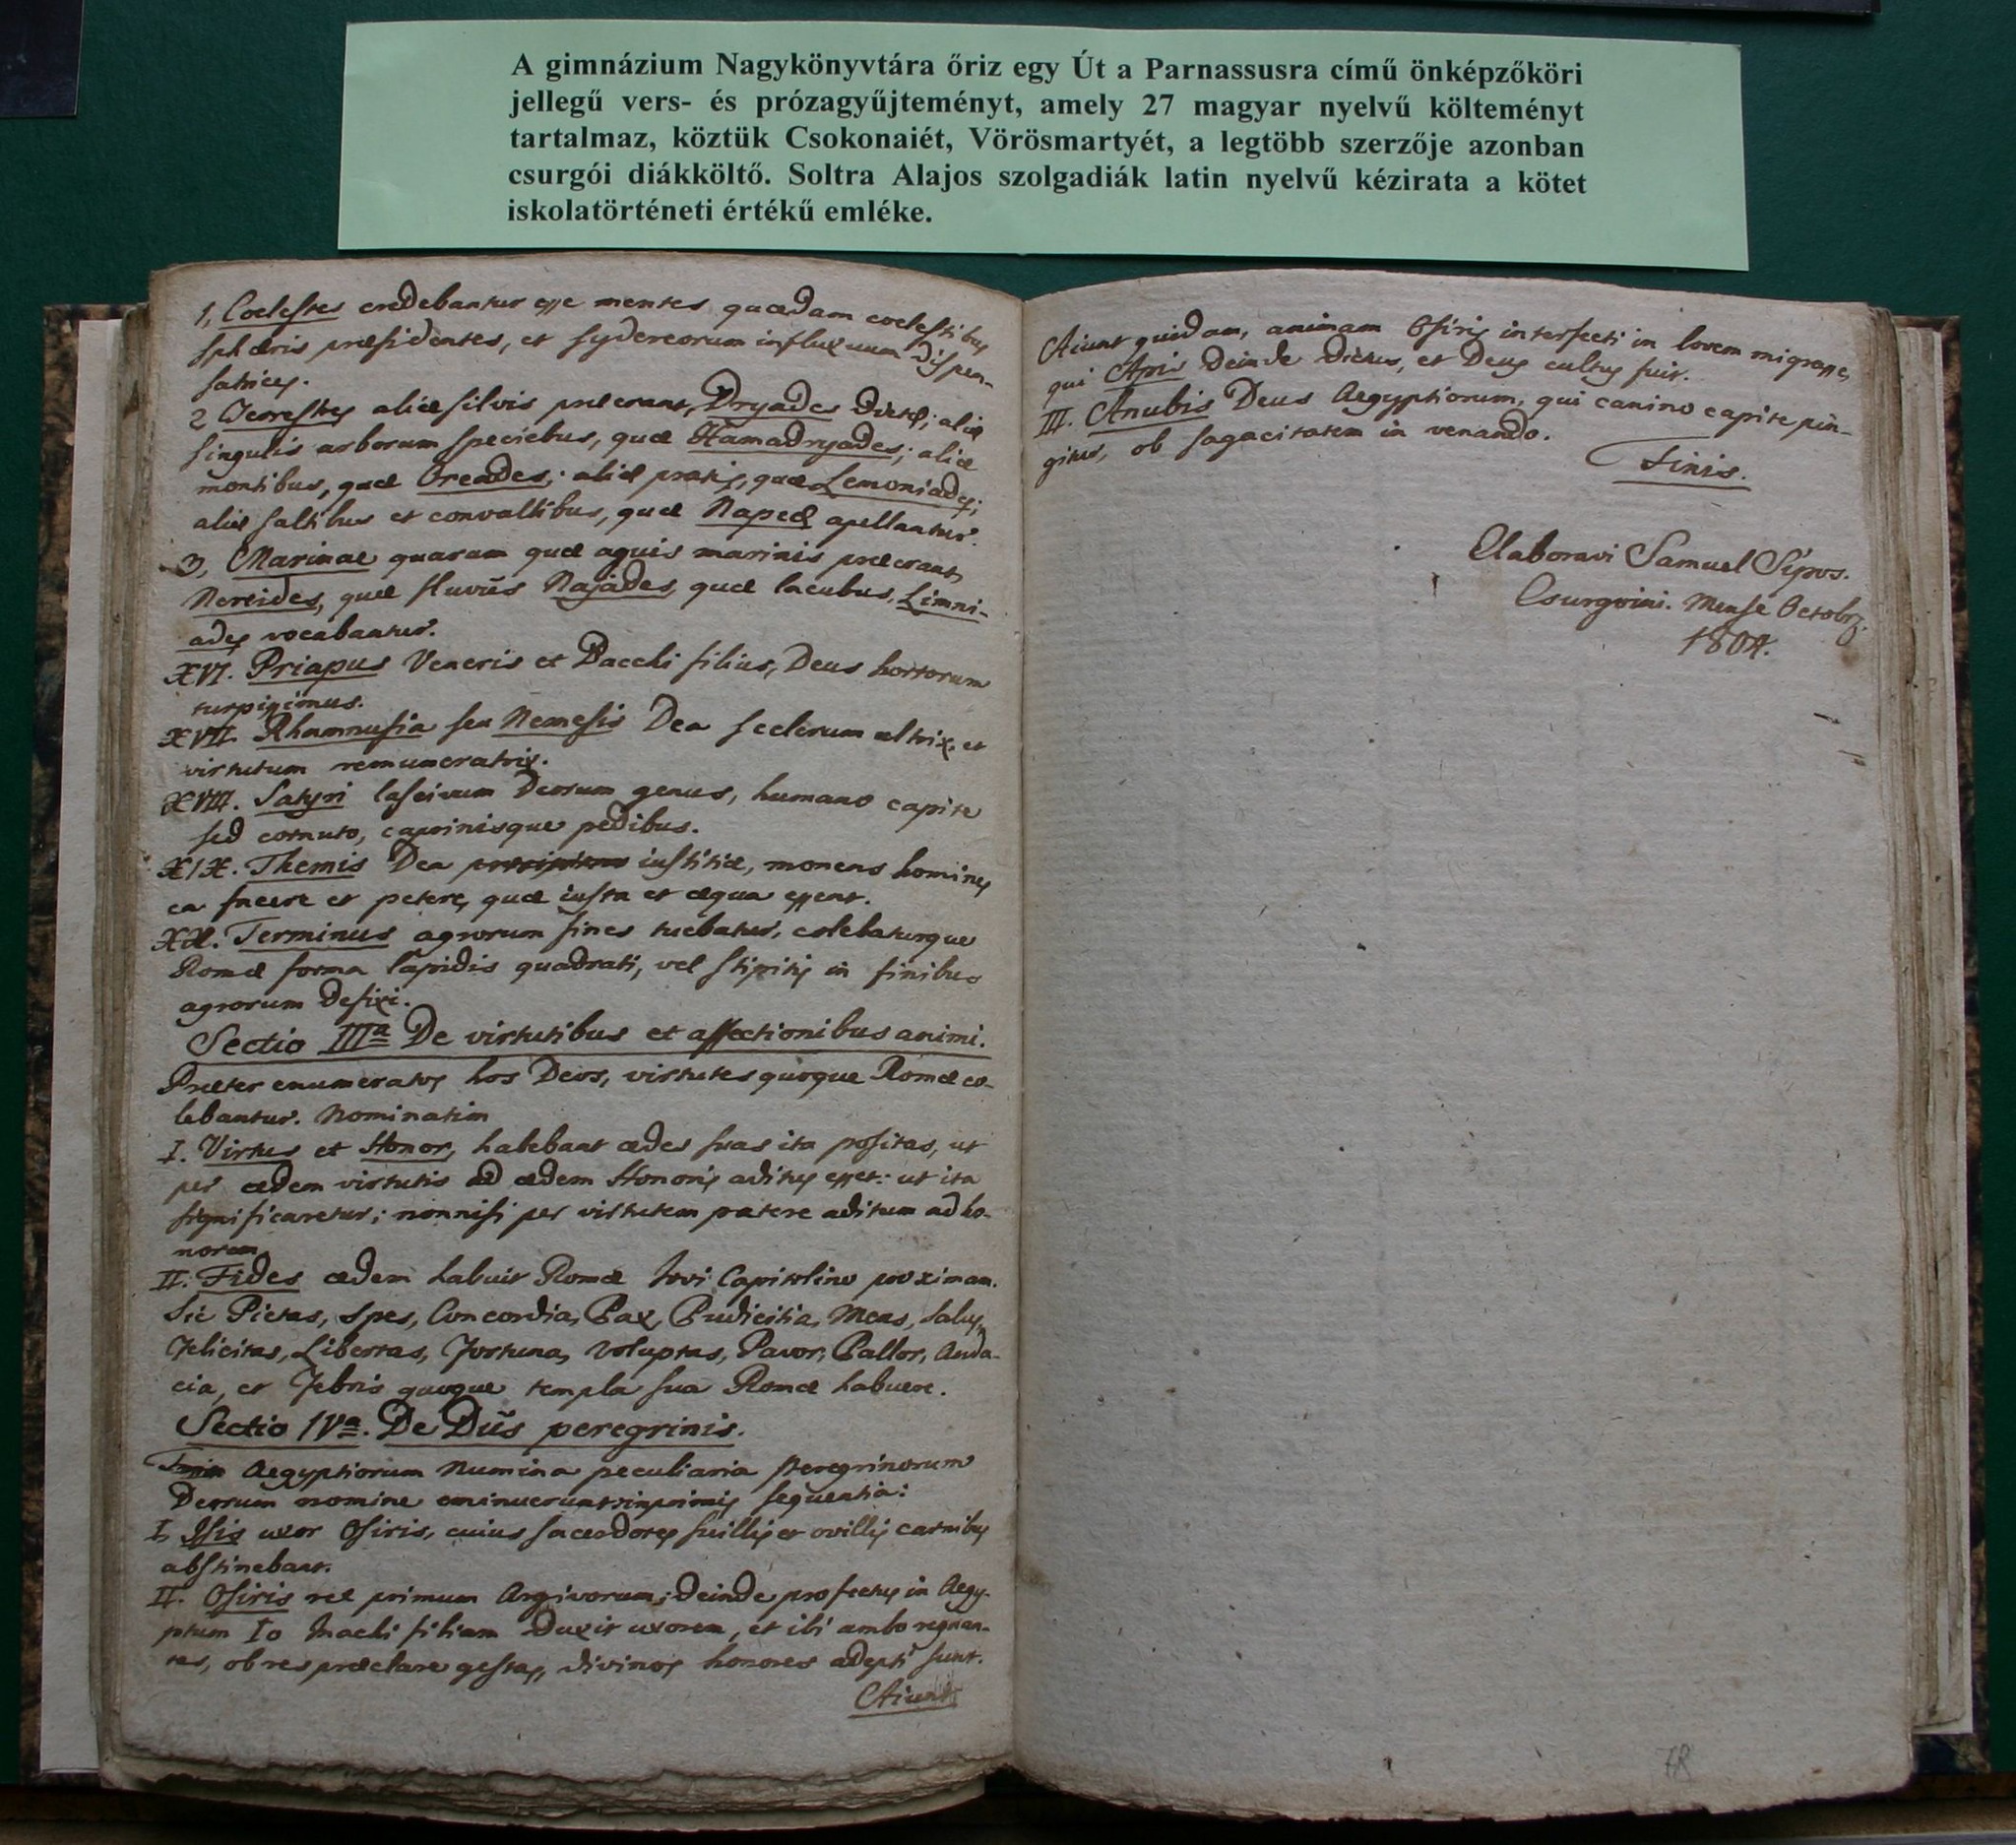 A gimnázium Nagykönyvtára őriz egy Út a Parnassusra című önképzőköri
jellegű vers- és prózagyűjteményt, amely 27 magyar nyelvű költeményt
tartalmaz, köztük Csokonaiét, Vörösmartyét, a legtöbb szerzője azonban
csurgói diákköltő. Soltra Alajos szolgadiák latin nyelvű kézirata a kötet
iskolatörténeti értékű emléke.
1, Coelestes credebantur esse mentes quaedam coelestibus
sphaeris praesidentes, et sydereorum influxuum dispen-
satrices.
2 aliae silvis praeerant, Dryades dictae; aliae
singulis arborum speciebus, quae Hamadryades; aliae
montibus, quae Oreades; aliae pratis, quae Lemoniades;
aliae saltibus et convallibus, quae Napeae apellantur.
3, Marinae quarum quae aquis marinis praeerant,
Nereides, quae fluviis Najades, quae lacubus, Limni-
ades vocabantur.
XVI. Priapus Veneris et Bacchi filius, Deus hortorum
turpissimus.
XVII. Rhamnusia seu Nemesis Dea scelerum ultrix, et
virtutum remuneratrix.
XVIII. Satyri lascivum Deorum genus, humano capite
sed cornuto, caprinisque pedibus.
XIX. Themis Dea iustitiae, monens homines
ea facere et petere, quae iusta et aequa essent.
XX. Terminus agrorum fines tuebatur, colebaturque
Romae forma lapidis quadrati, vel stipitis in finibus
agrorum defixi.
Sectio IIIa De virtutibus et affectionibus animi.
Praeter enumeratos hos Deos, virtutes quoque Romae co-
lebantur. Nominatim
I. Virtus et Honor, habebant aedes suas ita positas, ut
per aedem virtutis ad aedem Honoris aditus esset: ut ita
significaretur; nonnisi per virtutem patere aditum ad ho-
norem
II. Fides aedem habuit Romae Iovi Capitolino proximam.
Sic Pietas, Spes, Concordia, Pax, Pudicitia, Mens, Salus,
Felicitas, Libertas, Fortuna, Voluptas, Pavor, Pallor, Auda-
cia, et Febris quoque templa sua Romae habuere.
Sectio IVa. De Diis peregrinis.
Aegyptiorum Numina peculiaria peregrinorum
Deorum nomine eminuerunt inprimis sequentia:
I, Isis uxor Osiris, cuius sacerdotes suillis et ovillis carnibus
abstinebant.
II. Osiris rex primum Argivorum; deinde profectus in Aegy-
ptum Io Inachi filiam duxit uxorem, et ibi ambo regnan-
tes, ob res praeclare gestas, divinos honores adepti sunt.
Aiunt
Aiunt quidam, animam Osiris interfecti in bovem migrasse,
qui Apis deinde dictus, et Deus cultus fuit.
III. Anubis Deus Aegyptiorum, qui canino capite pin-
gitur, ob sagacitatem in venando.
Finis.
Elaboravi Samuel Sipos.
Csurgoini. Mense Octobr.
1804.